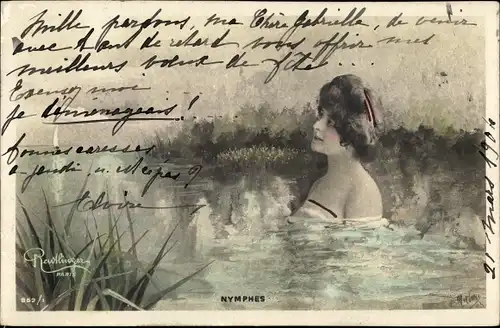 Mille pardons, ma Chère Gabrielle, de venir
avec tant de retard vous offrir mes
meilleurs vœux de fête ...
Excusez moi
je déménageais !
bonnes caresses
a jeudi, n'est ce pas ?
Reutlinger
PARIS
NYMPHES
21 mars